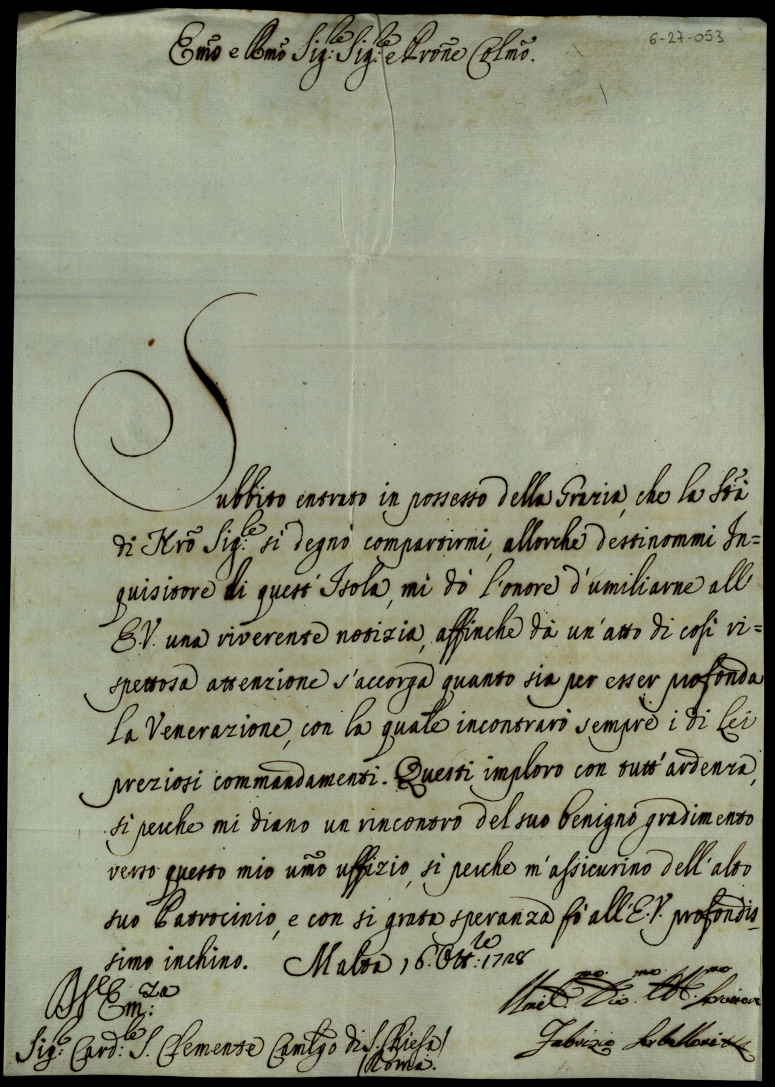 6-27-053
Em̃o e Rm̃o Sig:re Sig:re e Prone Colmo.
Subbito entrato in possesso della Grazia, che la Stà
di Nro Sig:re si degnò compartirmi, allorche destinommi In=
quisitore di quest' Isola, mi dò l'onore d'umiliarne all'
E.V. una riverente notizia, affinche da un'atto di così ri=
spettosa attenzione s'accorga quanto sia per esser profonda
la Venerazione, con la quale incontrarò sempre i di Lei
preziosi commandamenti. Questi imploro con tutt'ardenza,
sì perche mi diano un rincontro del suo benigno gradimento
verso questo mio umo uffizio, sì perche m'assicurino dell'alto
suo Patrocinio, e con sì grata speranza fò all'E.V. profondis=
simo inchino. Malta 16. Ott:re 1728
Em:za
Umil.mo Div.mo Obb.mo Servitore
Sig:re Card:le S. Clemente Camlgo di S. Chiesa
Fabrizio Serbelloni
(Roma.